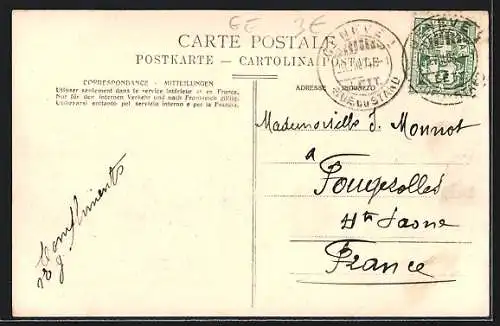 6E 3E
CARTE POSTALE
POSTKARTE - CARTOLINA POSTALE
CORRESPONDANCE - MITTEILUNGEN
Utiliser seulement dans le service intérieur et en France.
Nur für den internen Verkehr und nach Frankreich gültig.
Utilizzarsi soltanto pel servizio interno e per la Francia.
ADRESSE
GENÈVE 1
EXP. LETT.
Mademoiselle J. Monnot
à
Fougerolles
Hte Saone
France
Compliments